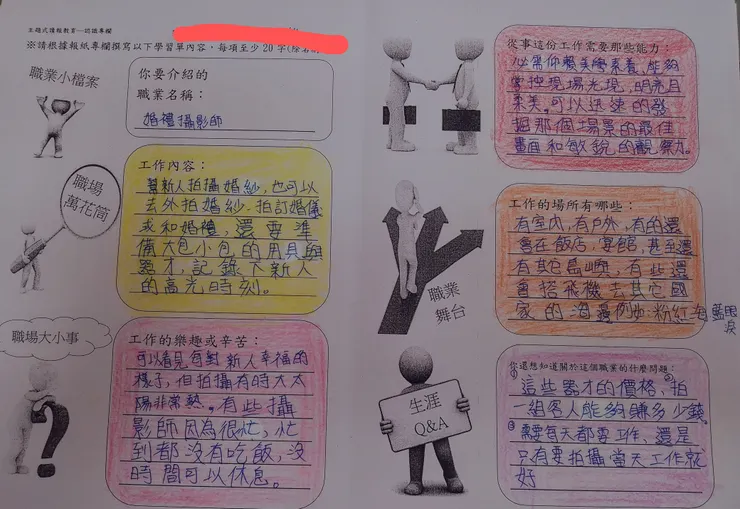 主題式壞報教育—認識專欄
※請根據報紙專欄撰寫以下學習單內容，每項至少20字
職業小檔案
你要介紹的
職業名稱：
婚禮攝影師
職場
萬花筒
工作內容：
幫新人拍攝婚紗，也可以
去外拍婚紗。拍訂婚儀
式和婚禮，還要準
備大包小包的用具與
器才，記錄下新人
的高光時刻。
職場大小事
工作的樂趣或辛苦：
可以看見每對新人幸福的
樣子，但拍攝有時大太
陽非常熱。有些攝
影師因為很忙，忙
到都沒有吃飯，沒
時間可以休息。
從事這份工作需要那些能力：
必需仰賴美學素養，能夠
掌控現場光現，明亮且
柔美。可以迅速的發
掘那個場景的最佳
畫面和敏銳的觀察力。
職業
舞台
工作的場所有哪些：
有室內，有戶外，有的還
會在飯店，宴館，甚至還
有其它島嶼，有些還
會搭飛機去其它國
家的海邊例如：粉紅海灘藍眼淚
生涯
Q&A
你還想知道關於這個職業的什麼問題：
①這些器才的價格，②拍
一組客人能夠賺多少錢
③需要每天都要工作、還是
只有要拍攝當天工作就
好